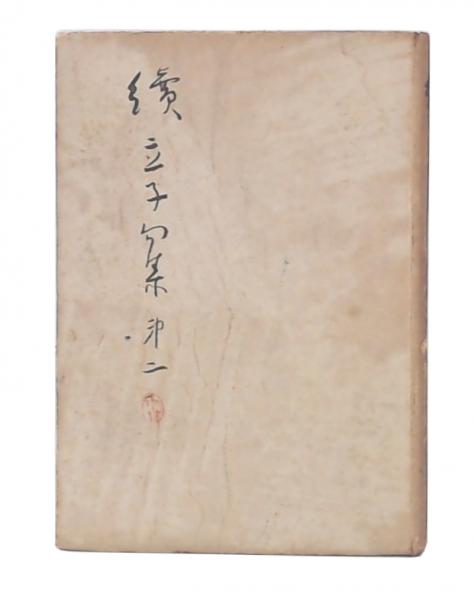 續立子句集第二